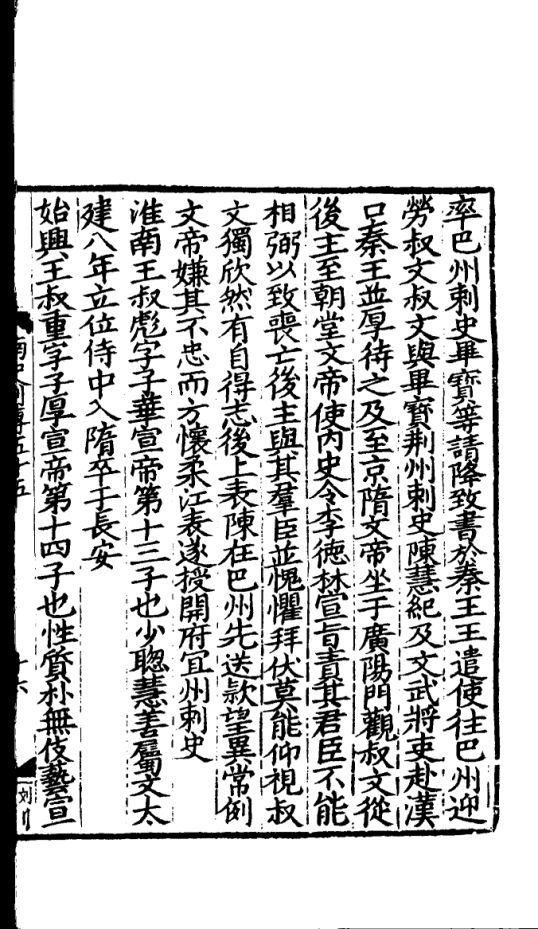 率巴州刺史畢寶等請降致書於秦王王遣使往巴州迎
勞叔文叔文與畢寶荆州刺史陳慧紀及文武將吏赴漢
口秦王並厚待之及至京隋文帝坐于廣陽門觀叔文從
後主至朝堂文帝使内史令李德林宣旨責其君臣不能
相弼以致喪亡後主與其羣臣並愧懼拜伏莫能仰視叔
文獨欣然有自得志後上表陳在巴州先送款望異常例
文帝嫌其不忠而方懷柔江表遂授開府宜州刺史
淮南王叔彪字子華宣帝第十三子也少聰慧善屬文太
建八年立位侍中入隋卒于長安
始興王叔重字子厚宣帝第十四子也性質朴無伎藝宣
南史列傳五十五
十六